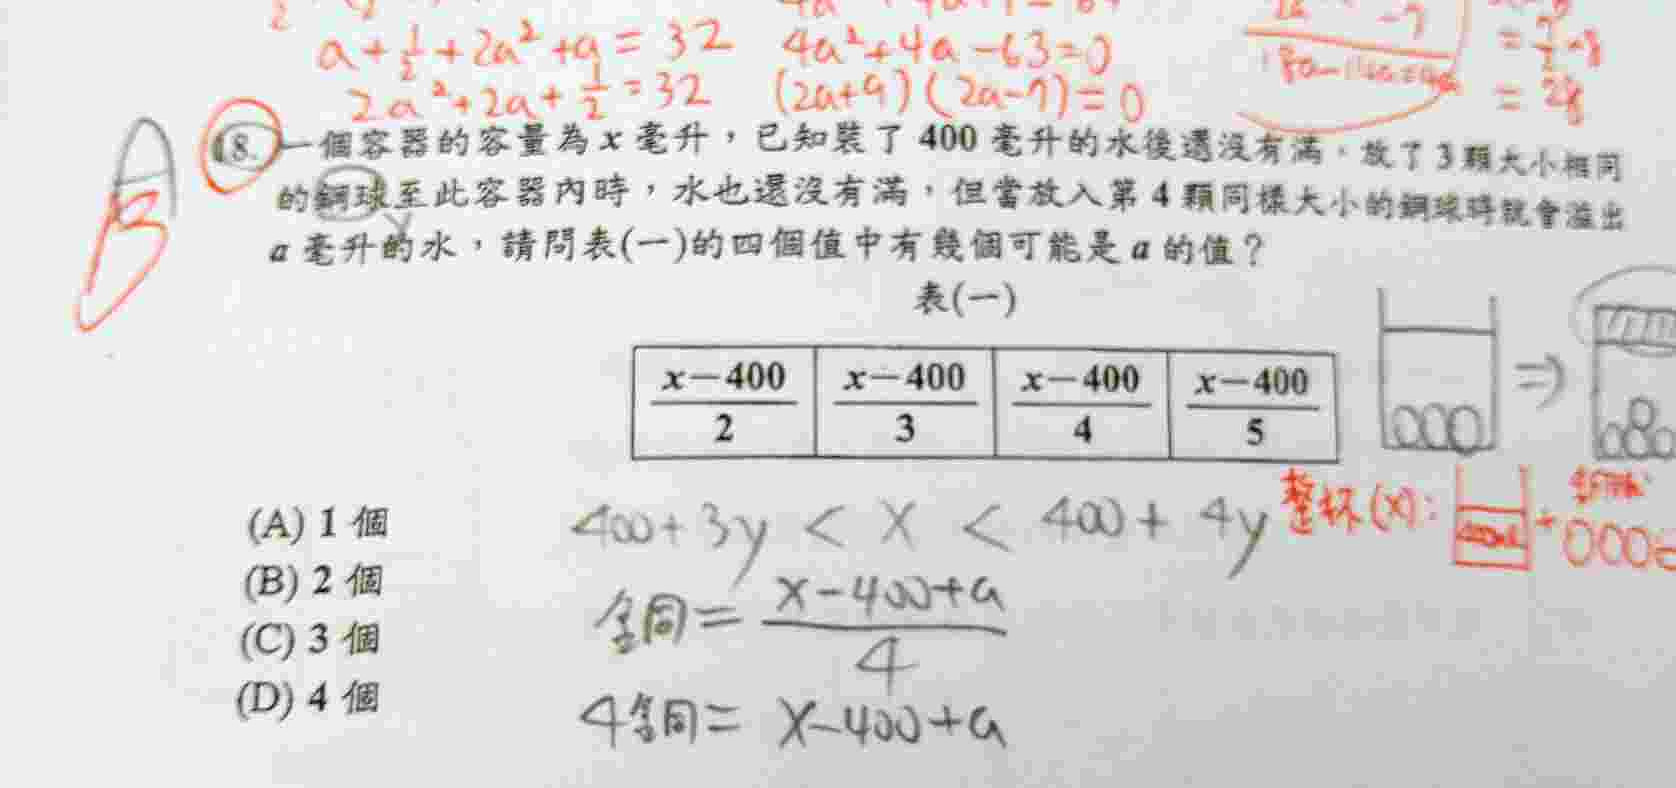 a+1/2+2a²+a=32
4a²+4a-63=0
2a²+2a+1/2=32
(2a+9)(2a-7)=0
18. 一個容器的容量為 x 毫升，已知裝了 400 毫升的水後還沒有滿。放了 3 顆大小相同
的鋼球至此容器內時，水也還沒有滿，但當放入第 4 顆同樣大小的鋼球時就會溢出
y
a 毫升的水，請問表(一)的四個值中有幾個可能是 a 的值？
表(一)
x－400/2 x－400/3 x－400/4 x－400/5
(A) 1 個
(B) 2 個
(C) 3 個
(D) 4 個
B
400+3y < x < 400+4y
整杯(x):
=x-400+a/4
4 = x-400+a